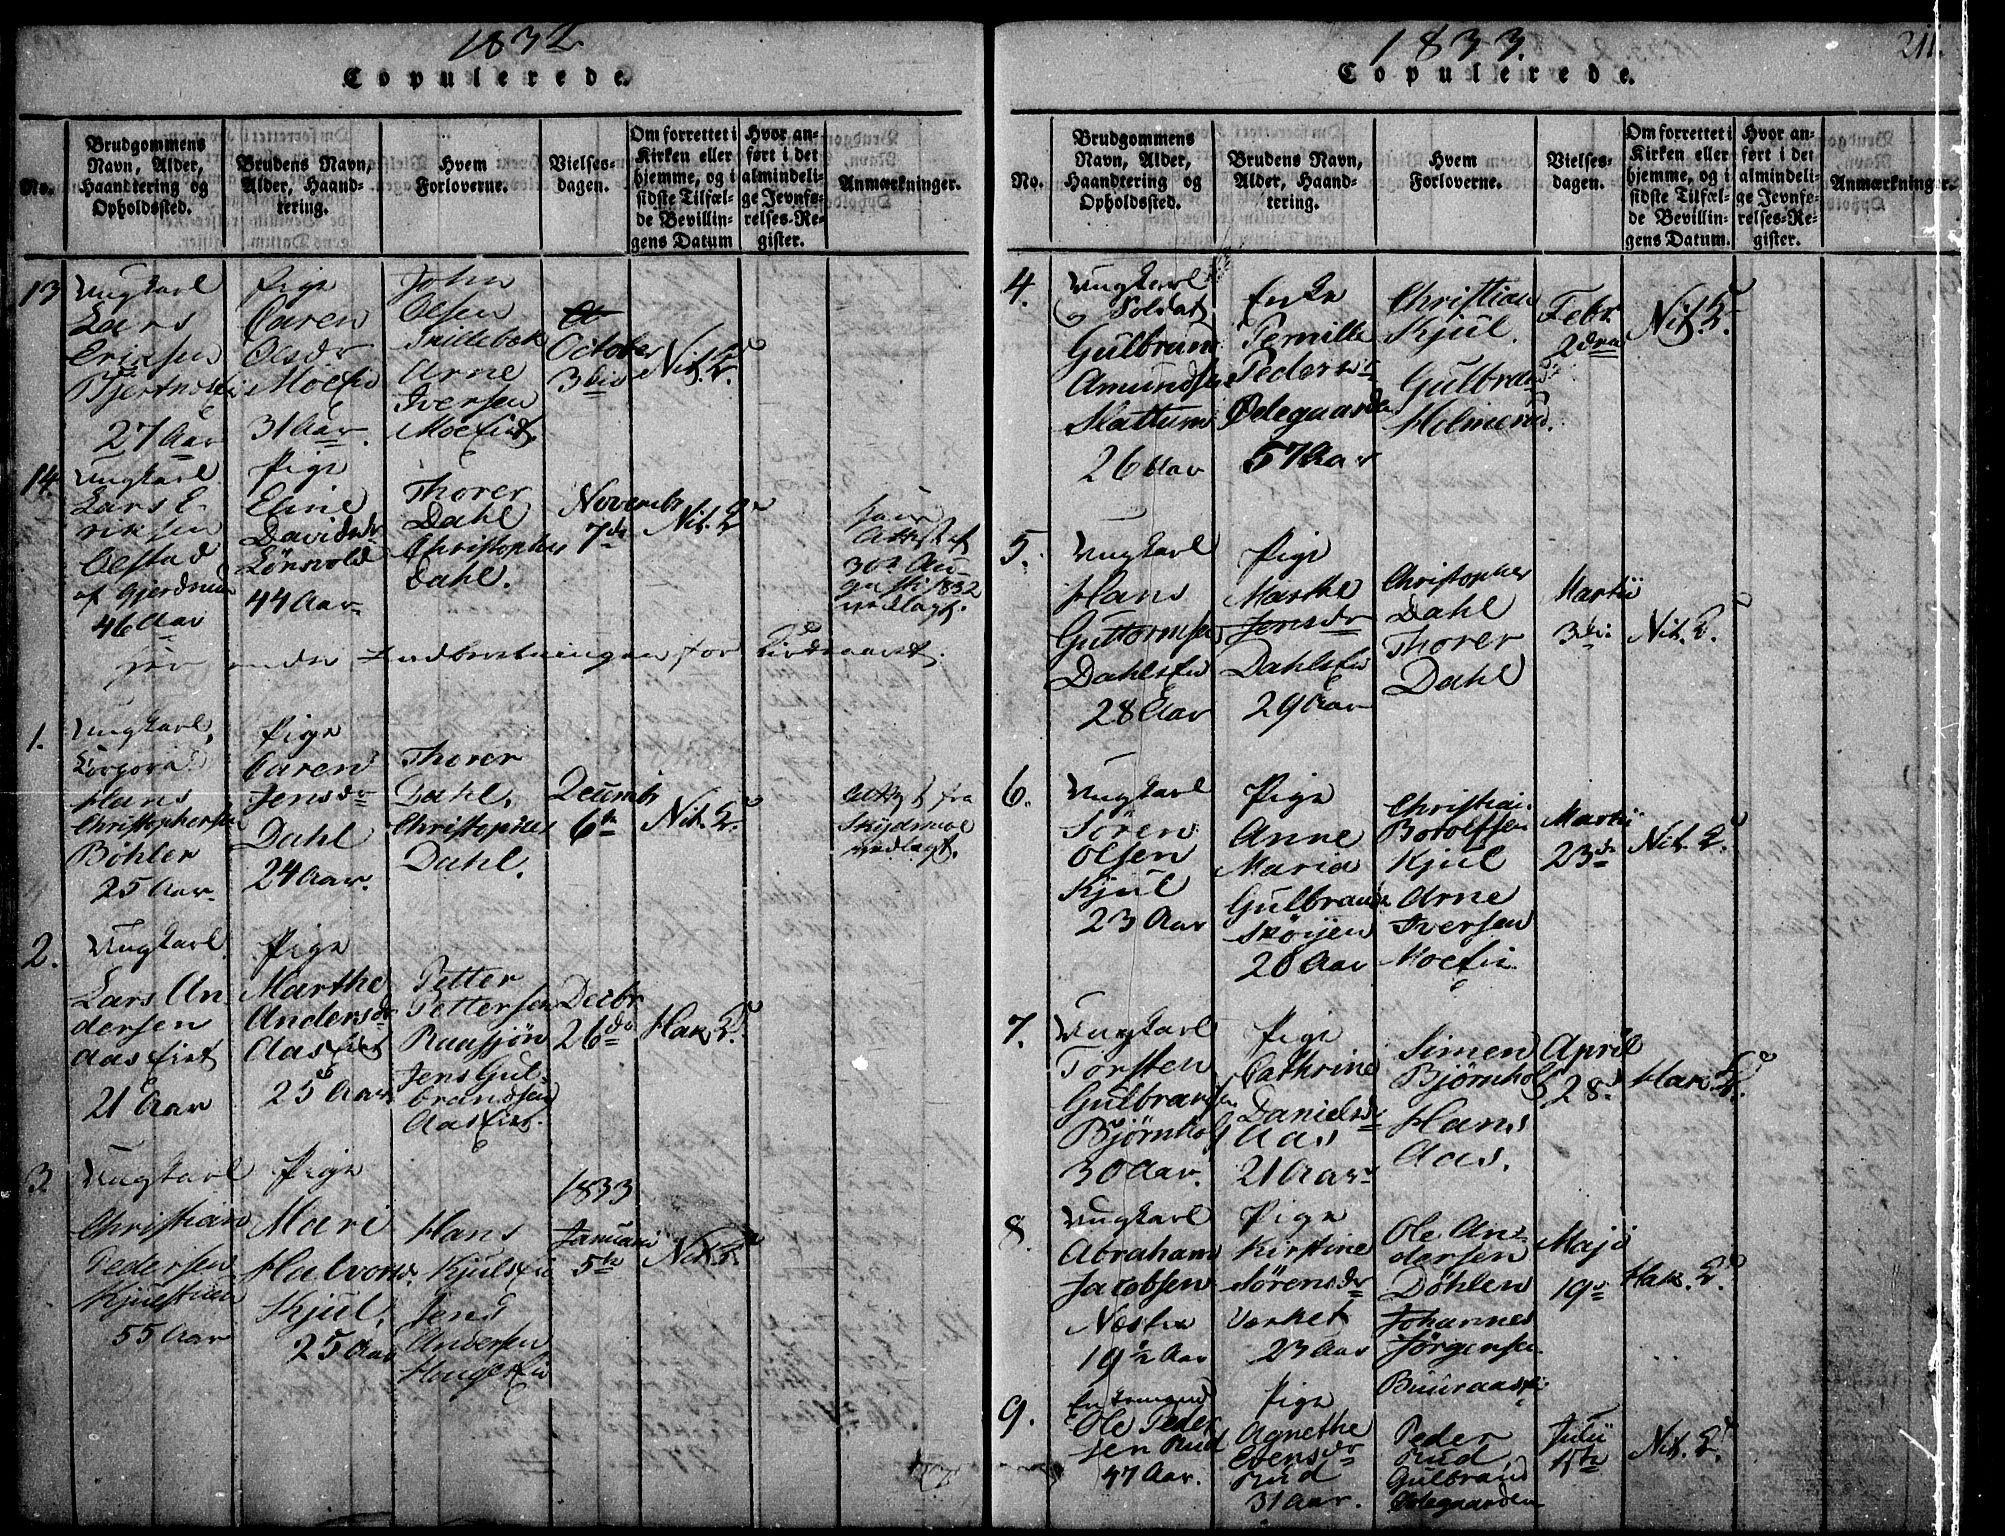 1832
Copulerede.
No.
Brudgommens
Navn, Alder,
Haandtering og
Opholdssted.
Brudens Navn,
Alder, Haand-
tering.
Hvem
Forloverne.
Vielses-
dagen.
Om forrettet i
Kirken eller
hjemme, og i
sidste Tilfæl-
de Bevillin-
gens Datum
Hvor an-
ført i det
almindeli-
ge Jevnfø-
relses-Re-
gister.
Anmærkninger.
13
Ungkarl
Lars
Ericsen
27 Aar
Pige
Caren
Olsdr
Moeeie
31 Aar.
John
Olsen
Trillebek
Arne
Iversen
Moeeiet.
October
3die
Nit. K.
14.
Ungkarl
Lars E-
riksen
Olstad
af Gjerdrum
46 Aar
Pige
Eline
Davidsdr
Lønvold
44 Aar
Thorer
Dahl
Christopher
Dahl.
Novembr
7de
Nit. K
Attest af
30te Au-
gusti 1832
vedlagt.
1.
Ungkarl,
Hans
Christophersen
Bøhler
25 Aar
Pige
Caren
Jensdr
Dahl
24 Aar.
Thorer
Dahl,
Christopher
Dahl.
Decembr
6te
Nit. K.
Attest fra
Skydsmoe
vedlagt.
2.
Ungkarl
Lars An-
dersen
Aaseiet
21 Aar
Pige
Marthe
Andersdr
Aaseiet
25 Aar
Petter
Pettersen
Raasjøn
Jens Gul-
brandsen
Aaseiet.
Decbr
26de
Hak. K.
3
Ungkarl
Christian
Pedersen
55 Aar
Pige
Mari
Halvorsd.
Kjul,
25 Aar
Hans
Kjulseie
Jens
Andersen
1833
Januari
5te
Nit. K.
1833.
211.
Copulerede.
No.
Brudgommens
Navn, Alder,
Haandtering og
Opholdssted.
Brudens Navn,
Alder, Haand-
tering.
Hvem
Forloverne.
Vielses-
dagen.
Om forrettet i
Kirken eller
hjemme, og i
sidste Tilfæl-
de Bevillin-
gens Datum.
Hvor an-
ført i det
almindeli-
ge Jevnfø-
relses-Re-
gister.
Anmærkninger.
4.
Ungkarl
og Soldat
Gulbrand
Amundsen
Slattum
26 Aar
Enke
Pernille
Pedersdr
Ødegaarden
57 Aar
Christian
Kjul.
Gulbrand
Holmerud.
Febr.
2den
Nit. K.
5.
Ungkarl
Hans
Guttormsen
Dahleeie
28 Aar
Pige
Marthe
Jensdr
Dahleeie
29 Aar
Christopher
Dahl
Thorer
Dahl
Martii
3die
Nit. K.
6.
Ungkarl
Søren
Olsen
Kjul
23 Aar
Pige
Anne
Maria
Gulbrandsd.
Skøyen
20 Aar
Christian
Botolfsen
Kjul
Arne
Iversen
Moeeie
Martii
23de
Nit. K.
7.
Ungkarl
Torsten
Gulbransen
Bjørnhol
30 Aar.
Pige
Cathrine
Danielsdr
Aas
21 Aar
Simen
Bjørnhol
Hans
Aas.
April
28.
Hak. K.
8.
Ungkarl
Abraham
Jacobsen
19 1/2 Aar
Pige
Kirstine
Sørensdr
Værket
23 Aar
Ole An-
dersen
Døhlen
Johannes
Jørgensen
Buuraas
Maji
19de
Hak. K.
9.
Enkemand
Ole Peder
sen Rud
47 Aar.
Pige
Agnethe
Evensdr
Rud
31 Aar.
Peder
Rud
Gulbrand
Ødegaarden
Julii
Nit. K.